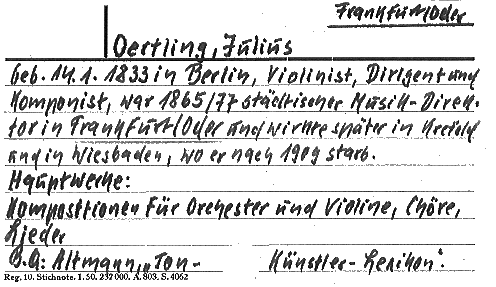 Frankfurt/Oder
Oertling, Julius
geb. 14.1. 1833 in Berlin, Violinist, Dirigent und
Komponist, war 1865/77 städtischer Musik-Direk-
tor in Frankfurt/Oder und wirkte später in Krefeld
und in Wiesbaden, wo er nach 1909 starb.
Hauptwerke:
Kompositionen für Orchester und Violine, Chöre,
Lieder
B.A: Altmann, „Ton- Künstler-Lexikon".
Reg. 10. Stichnote. 1. 50. 237 000. A. 803. S. 4062